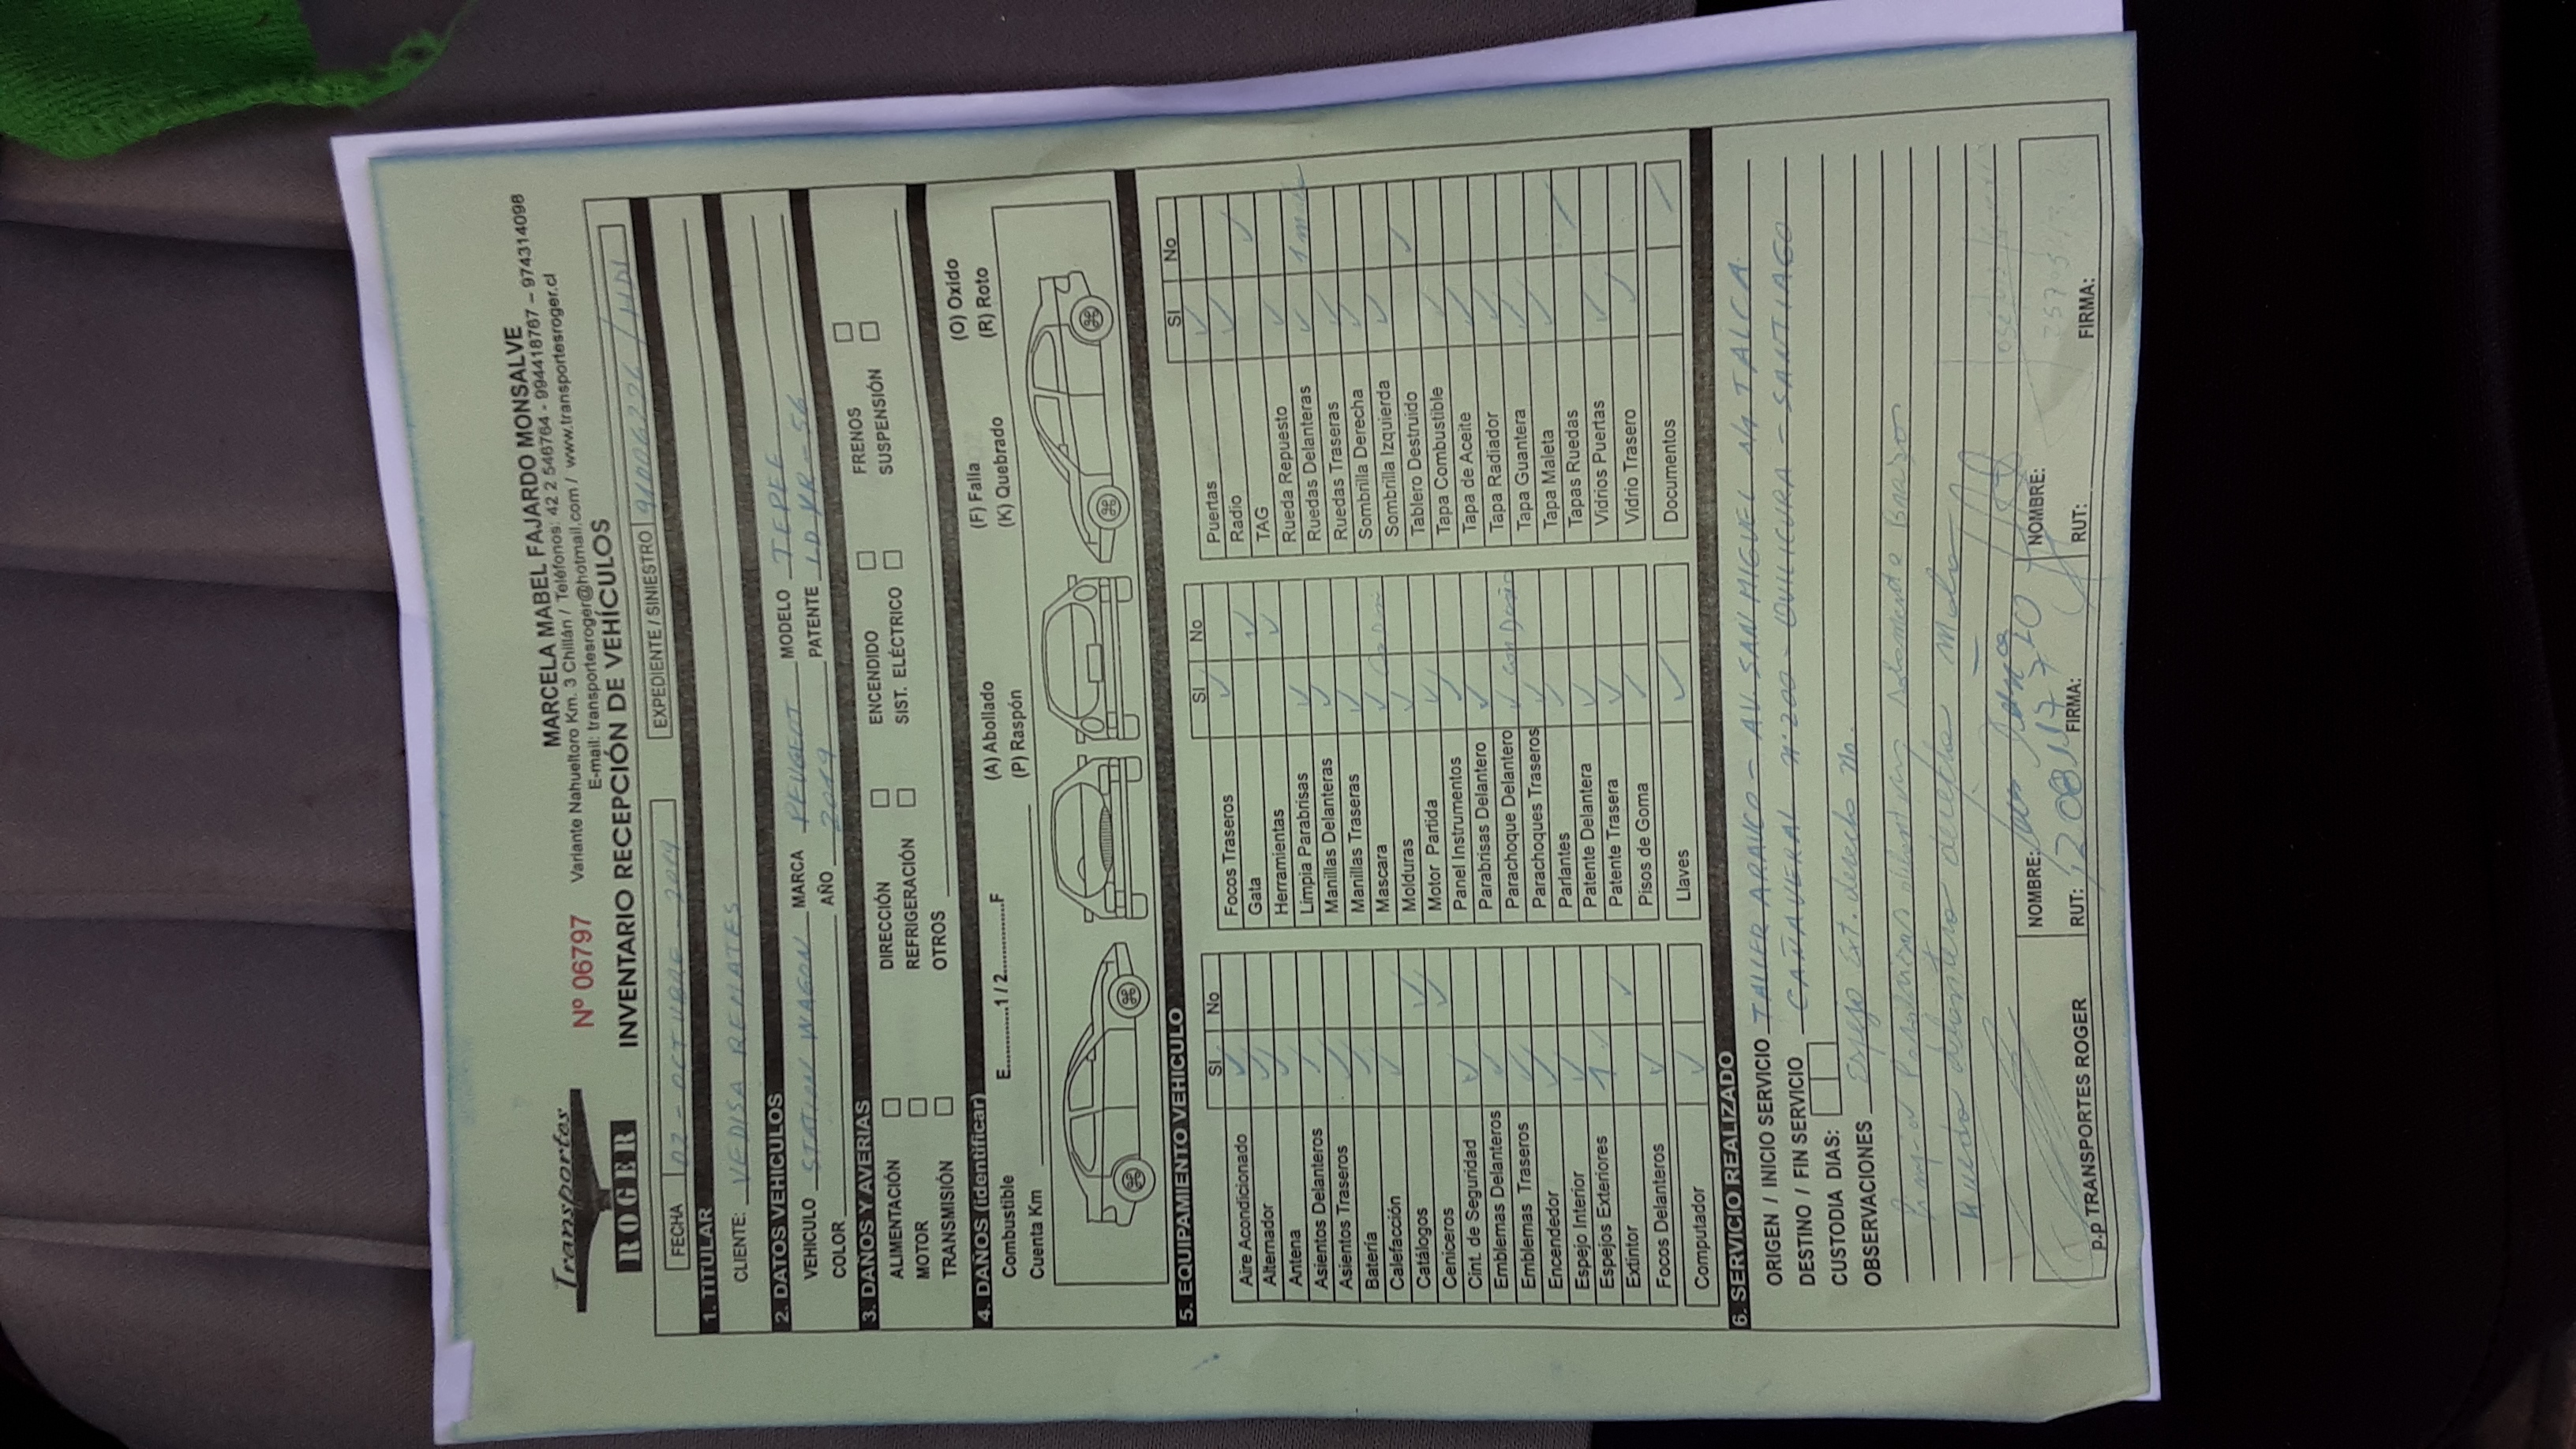 Transportes
ROGER
Nº 06797
MARCELA MABEL FAJARDO MONSALVE
Variante Nahueltoro Km. 3 Chillán / Teléfonos: 42 2 546764 - 994418767 – 974314098
E-mail: transportesroger@hotmail.com / www.transportesroger.cl
INVENTARIO RECEPCIÓN DE VEHÍCULOS
FECHA 02 - OCTUBRE - EXPEDIENTE / SINIESTRO
1. TITULAR
CLIENTE: VEDISA REMATES
2. DATOS VEHICULOS
VEHICULO STATION WAGON MARCA PEUGEOT MODELO TEPEE
COLOR AÑO 2019 PATENTE
3. DAÑOS Y AVERIAS
ALIMENTACIÓN DIRECCIÓN ENCENDIDO FRENOS
MOTOR REFRIGERACIÓN SIST. ELÉCTRICO SUSPENSIÓN
TRANSMISIÓN OTROS
4. DAÑOS (identificar)
Combustible E............1 / 2............F (A) Abollado (F) Falla (O) Oxido
Cuenta Km (P) Raspón (K) Quebrado (R) Roto
5. EQUIPAMIENTO VEHICULO
SI No
Aire Acondicionado ✓
Alternador ✓
Antena ✓
Asientos Delanteros ✓
Asientos Traseros ✓
Batería ✓
Calefacción ✓
Catálogos ✓
Ceniceros ✓
Cint. de Seguridad ✓
Emblemas Delanteros ✓
Emblemas Traseros ✓
Encendedor ✓
Espejo Interior ✓
Espejos Exteriores 1 ✓
Extintor ✓
Focos Delanteros ✓
Computador ✓
SI No
Focos Traseros ✓
Gata ✓
Herramientas ✓
Limpia Parabrisas ✓
Manillas Delanteras ✓
Manillas Traseras ✓
Mascara ✓
Molduras ✓
Motor Partida ✓
Panel Instrumentos ✓
Parabrisas Delantero ✓
Parachoque Delantero ✓
Parachoques Traseros ✓
Parlantes ✓
Patente Delantera ✓
Patente Trasera ✓
Pisos de Goma ✓
Llaves ✓
SI No
Puertas ✓
Radio ✓
TAG ✓
Rueda Repuesto ✓
Ruedas Delanteras ✓
Ruedas Traseras ✓
Sombrilla Derecha ✓
Sombrilla Izquierda ✓
Tablero Destruido ✓
Tapa Combustible ✓
Tapa de Aceite ✓
Tapa Radiador ✓
Tapa Guantera ✓
Tapa Maleta ✓
Tapas Ruedas ✓
Vidrios Puertas ✓
Vidrio Trasero ✓
Documentos ✓
6. SERVICIO REALIZADO
ORIGEN / INICIO SERVICIO TALLER ARAUCO - AV. SAN MIGUEL TALCA.
DESTINO / FIN SERVICIO CAÑAVERAL Nº 200 - QUILICURA - SANTIAGO
CUSTODIA DIAS:
OBSERVACIONES Espejo Ext. derecho No.
P.P TRANSPORTES ROGER
NOMBRE:
RUT: FIRMA:
NOMBRE:
RUT: FIRMA: